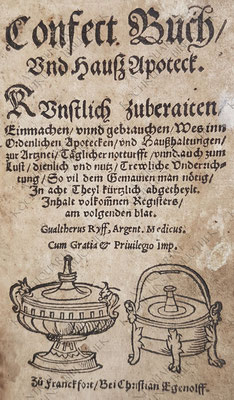 Confect Buch/
Vnd Haußz Apoteck.
KVnstlich zuberaiten/
Einmachen/ vnnd gebrauchen/ Wes inn
Ordenlichen Apotecken/ vnd Haußhaltungen/
zur Artznei/ Täglicher notturfft/ vnnd auch zum
Lust/ dienlich vnd nutz/ Trewliche Vnderrich-
tung/ So vil dem Gemainen man nötig/
In acht Theyl kürtzlich abgetheylt.
Inhalt volkomnen Registers/
am volgenden blat.
Gualtherus Ryff, Argent. Medicus.
Cum Gratia & Priuilegio Imp.
Zů Franckfort/ Bei Christian Egenolff.